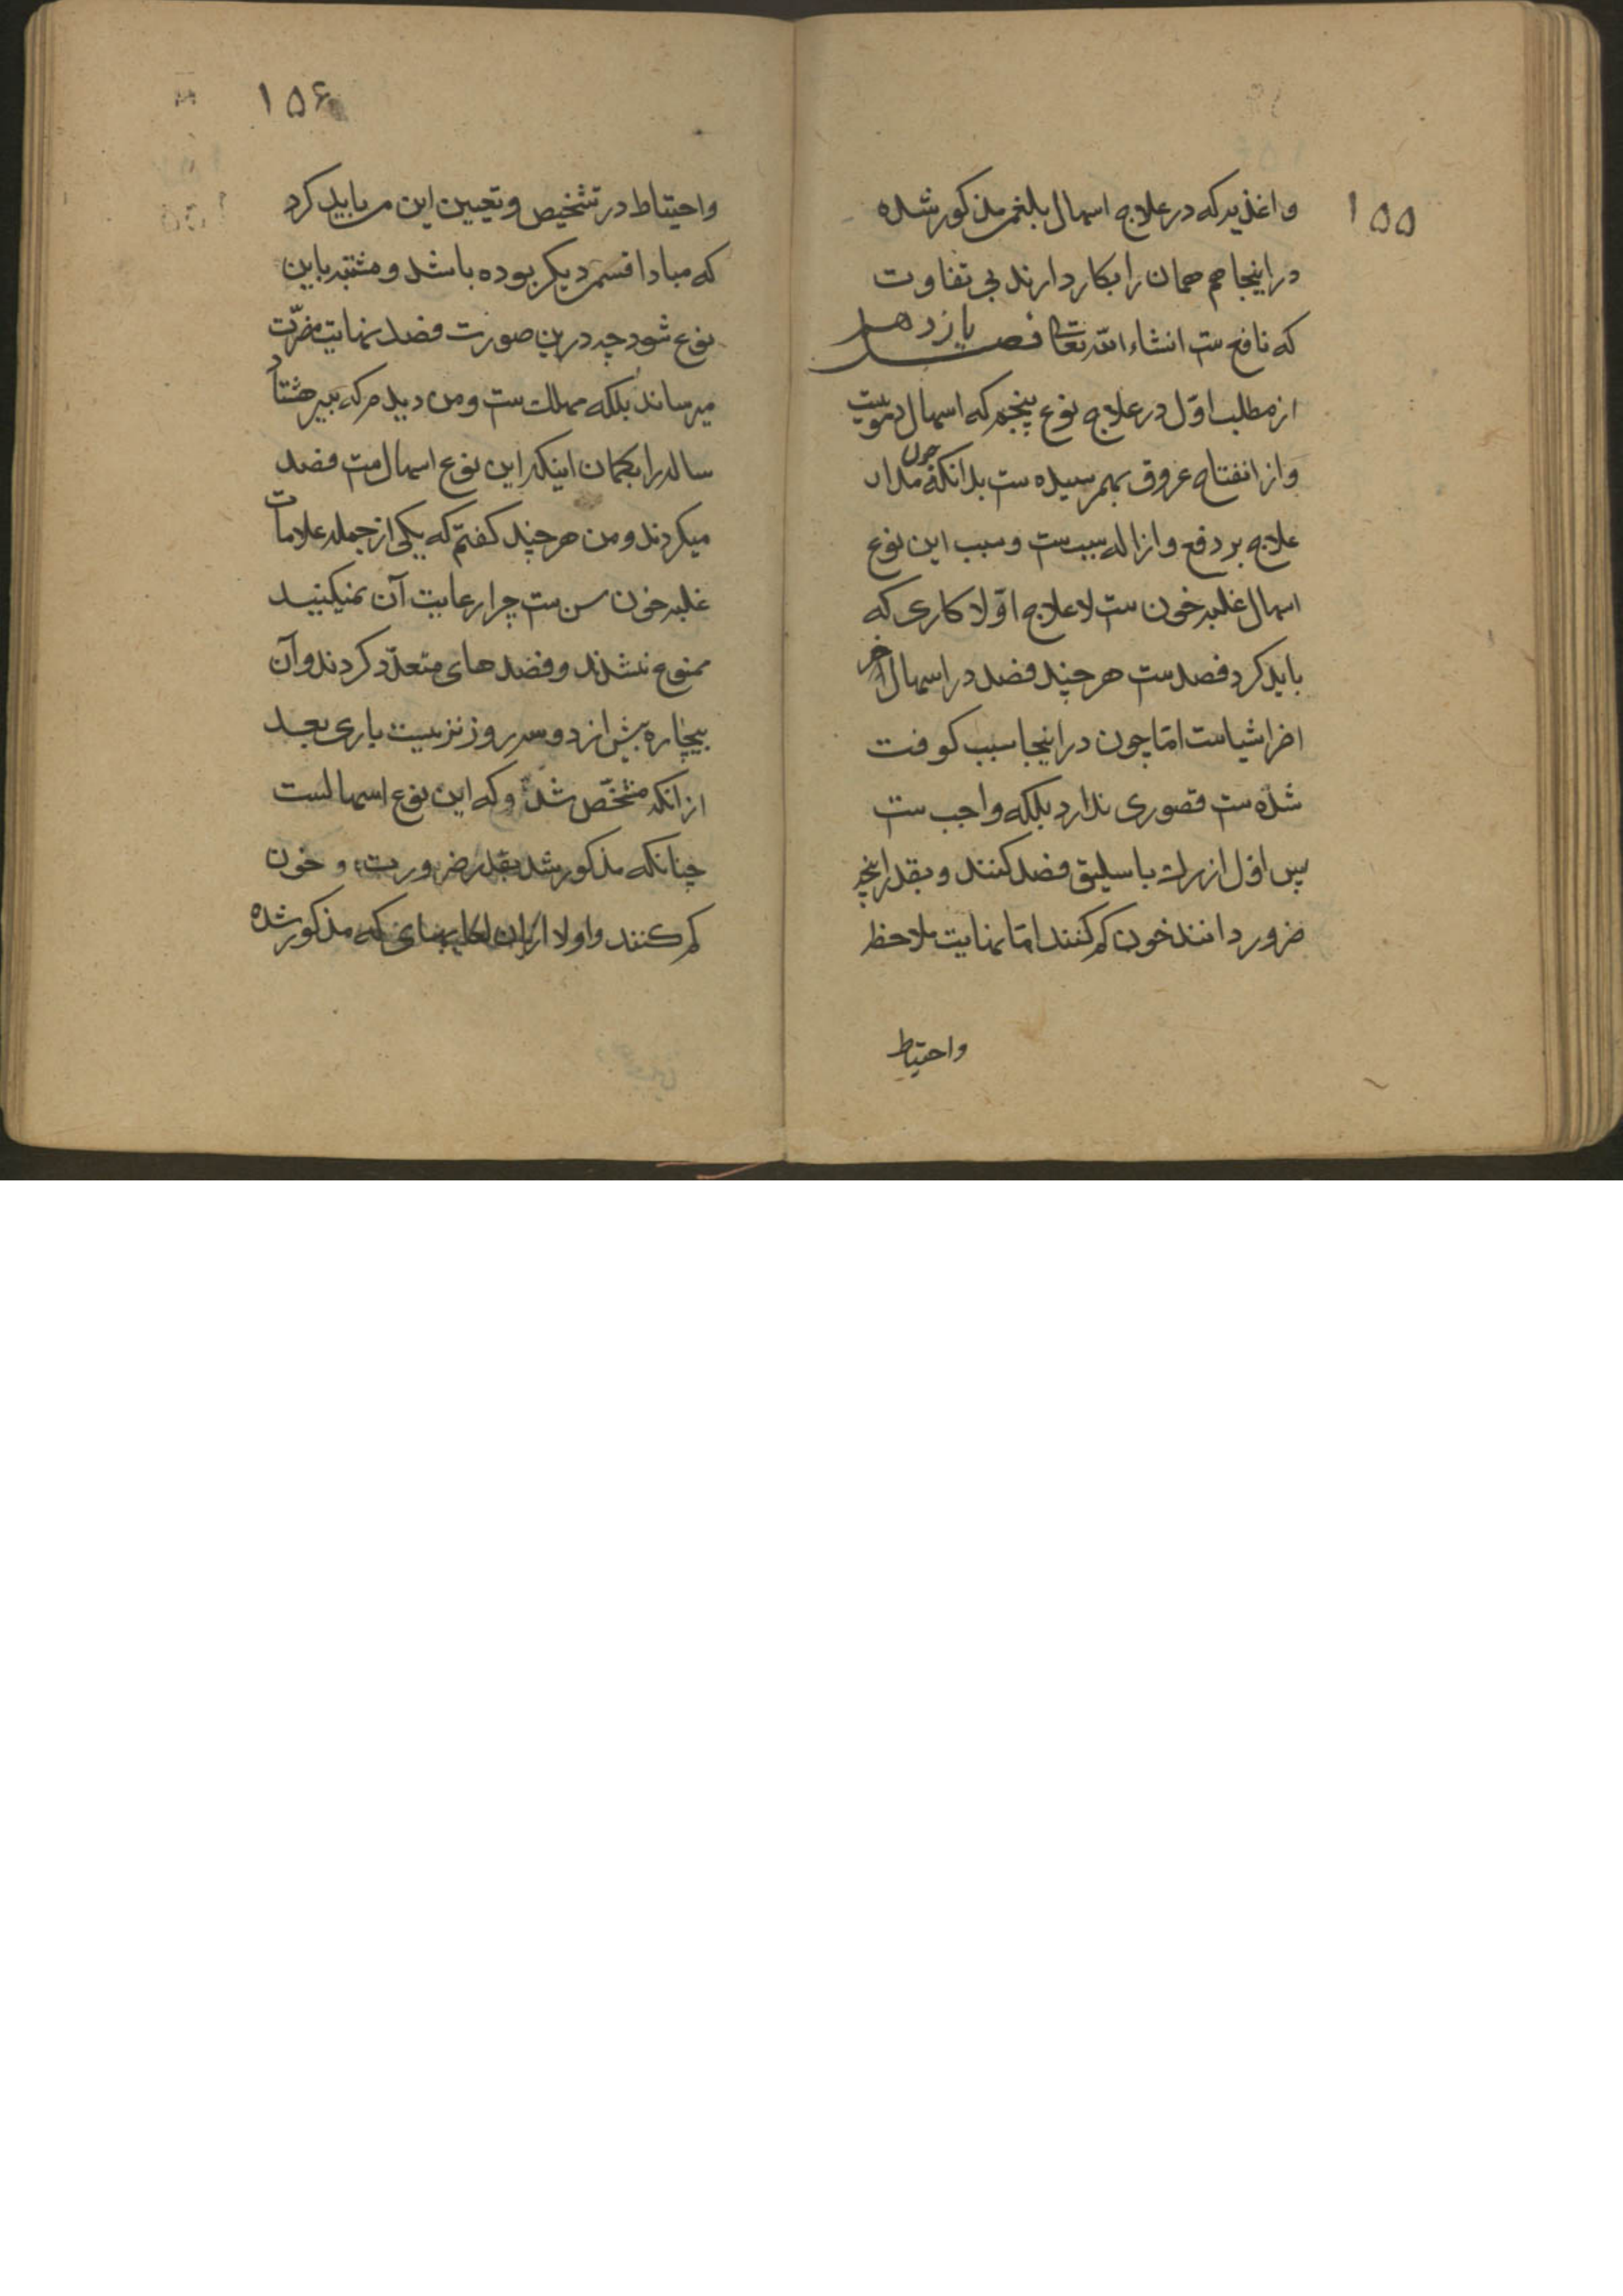 ۱۵۵
و اغذیه که در علاج اسهال بلغمی مذکور شده
در اینجا هم همان را بکار دارند بی تفاوت
که نافع ست انشاء الله تعالی فصل یازدهم
از مطلب اول در علاج نوع پنجم که اسهال دمویست
و از انفتاح عروق بهم رسیده ست بدانکه چون مدار
علاج بر دفع و ازاله سبب ست و سبب این نوع
اسهال غلبه خون ست لاعلاج اوّلا کاری که
باید کرد فصد ست هر چند فصد در اسهال آخر
اشیاست امّا چون در اینجا سبب کوفت
شده ست قصوری ندارد بلکه واجب ست
پس اول از رک باسلیق فصد کنند و بقدر آنچه
ضرور دانند خون کم کنند امّا نهایت ملاحظه
واحتیاط
۱۵۶
واحتیاط در تشخیص و تعیین این می باید کرد
که مبادا قسم دیکر بوده باشد و مشتبه باین
نوع شود چه درین صورت فصد نهایت مضرّت
میرساند بلکه مهلک ست و من دیدم که پیر هشتاد
ساله را بکمان اینکه این نوع اسهال ست فصد
میکردند و من هر چند کفتم که یکی از جمله علامات
غلبه خون سن ست چرا رعایت آن نمیکنید
ممنوع نشدند و فصدهای متعدّد کردند و آن
بیچاره بیش از دو سه روز نزیست باری بعد
از انکه مشخّص شد که این نوع اسهالست
چنانکه مذکور شد بقدر ضرورت و خون
کم کنند و اولا از ان لعابهای که مذکور شده